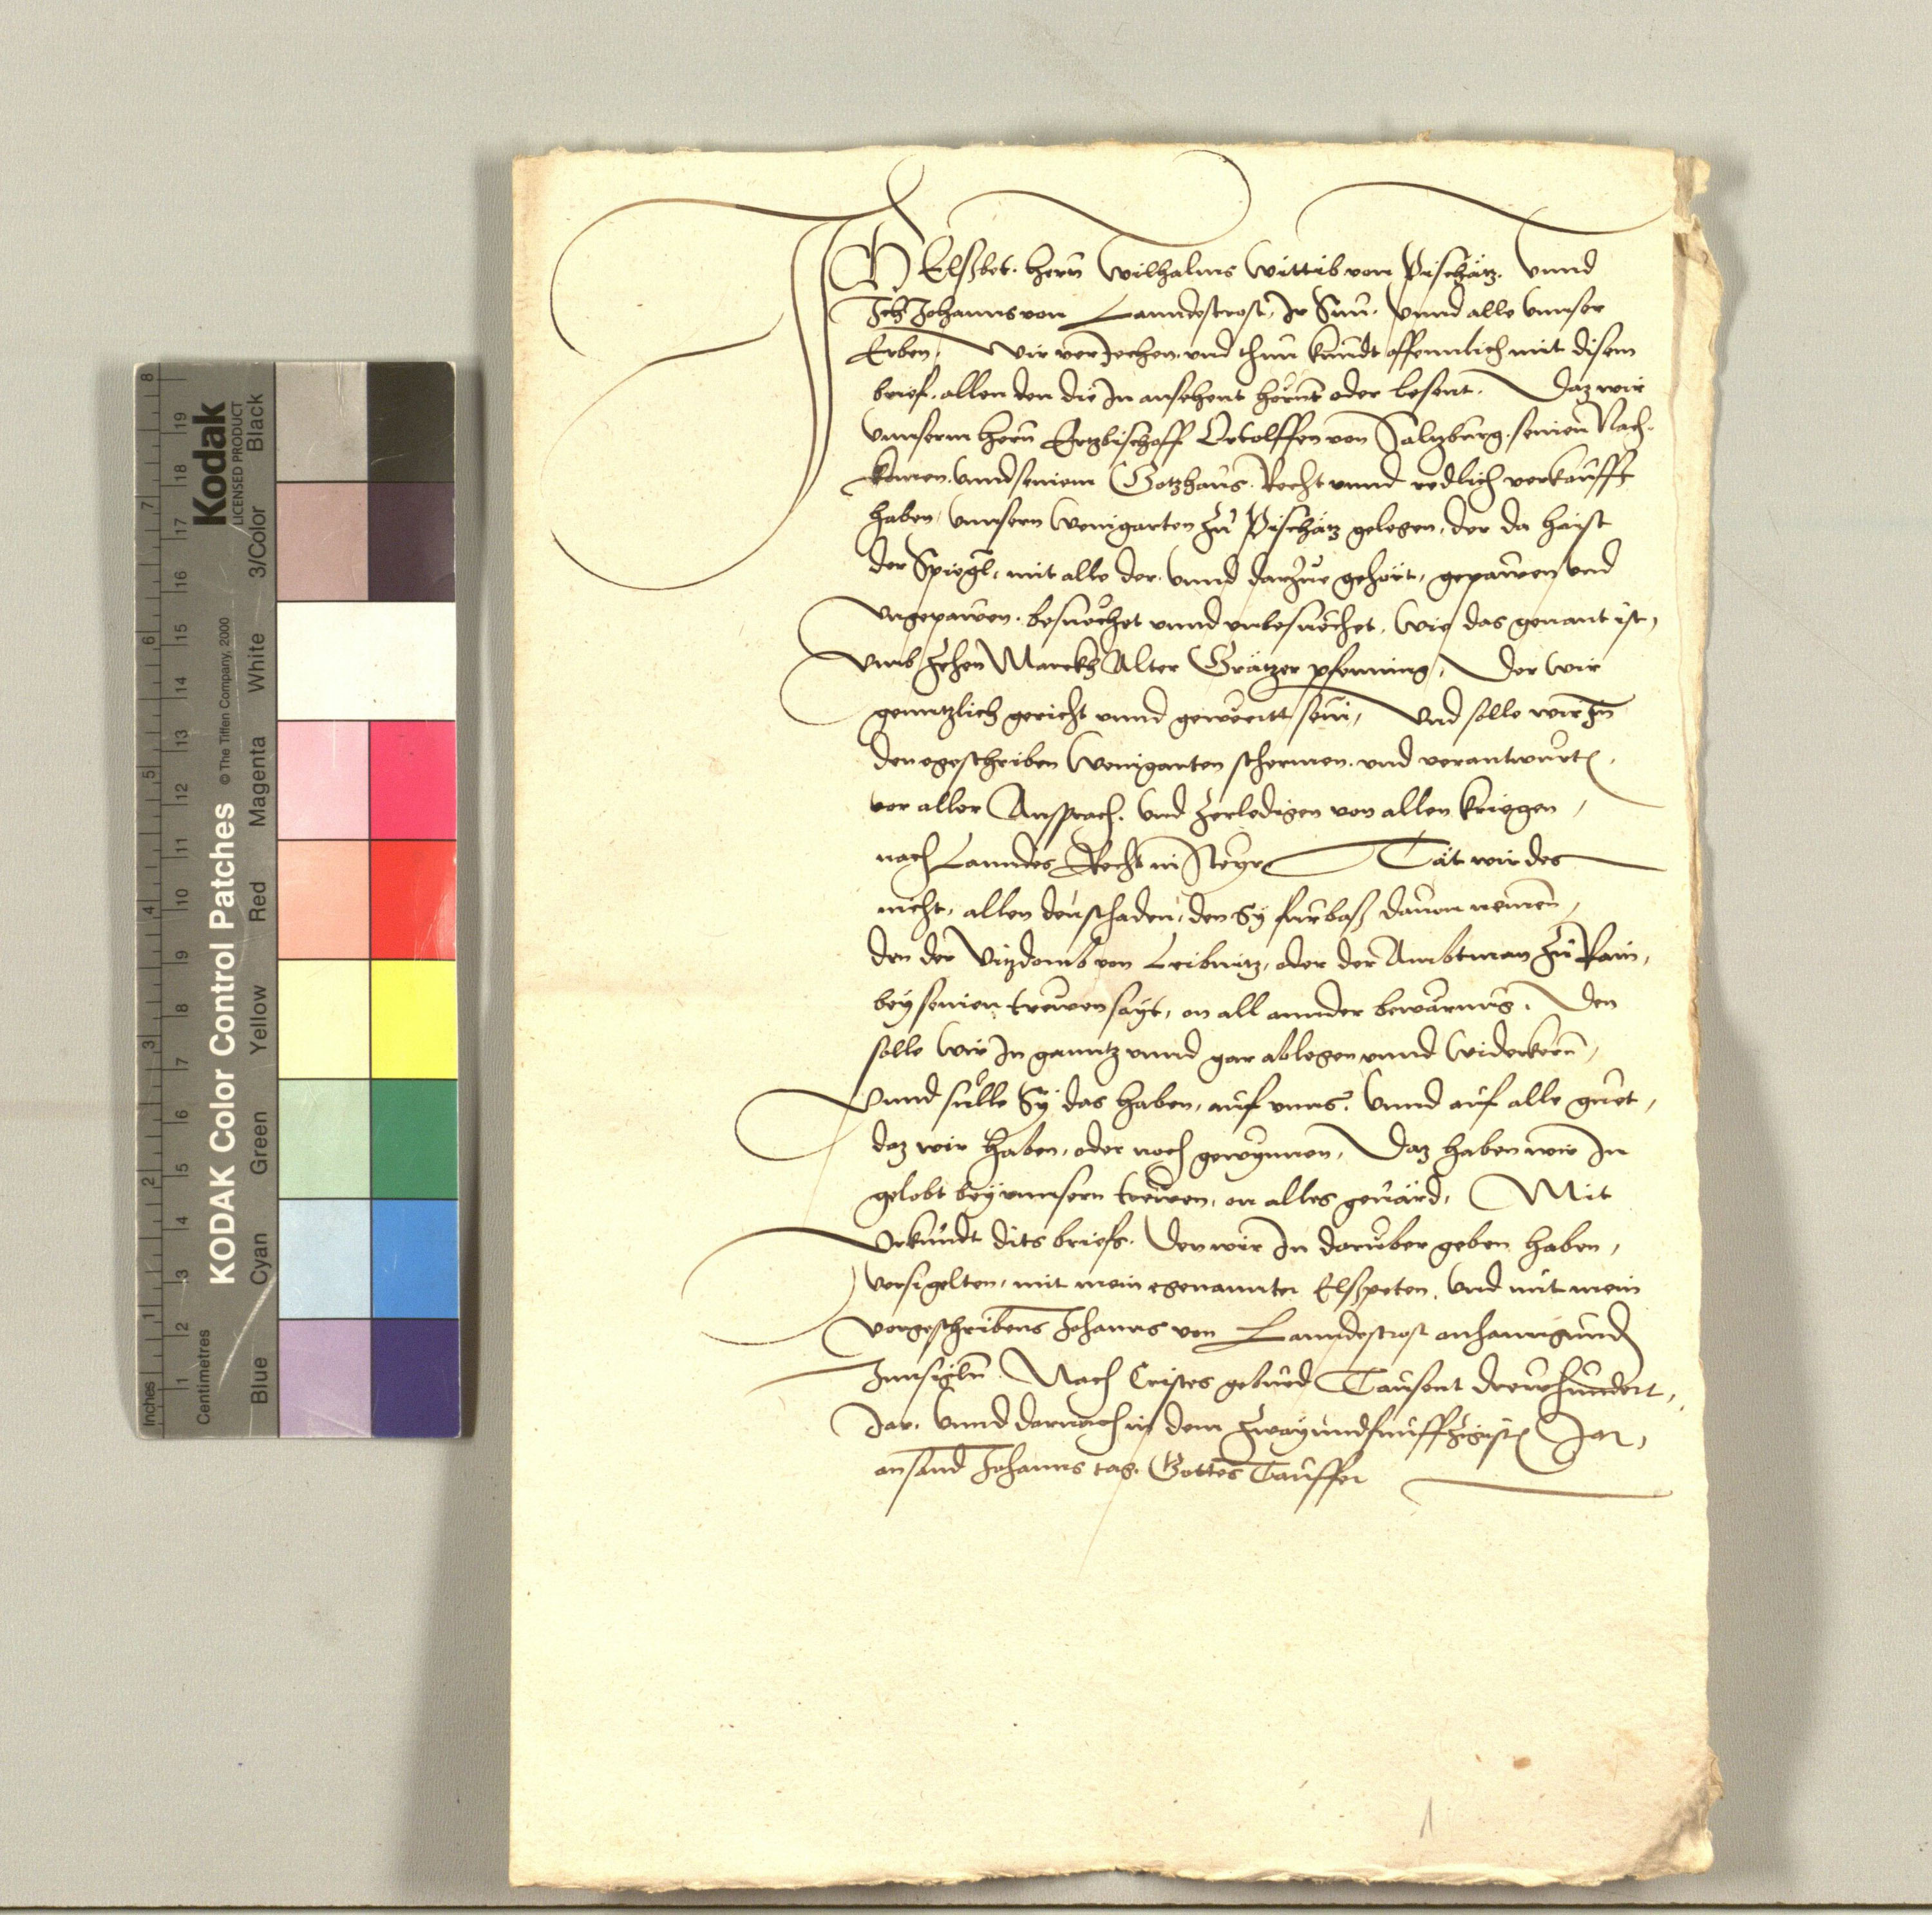 Ich Elszbet. herrn Wilhalms Wittib von Pischätz. Vnnd
Ich Johanns von Lanndestrost, Ir Sun. Vnnd alle vnnser
Erben. Wir verJechen. vnd thun kundt offennlich mit disem
brief. allen den die In ansehent hörnt oder lesent. Daz wir
Vnnserm herrn Ertzbischoff Ortolffen von Saltzburg. seinen Nach-
komen. vnnd seinem Gotzhaus. Recht vnnd redlich verkaufft
haben, Vnnsern Weingarten zu Pischätz gelegen, der da haist
der Spiegl, mit alle der. vnnd darzue gehört, gepawen vnd
vngepawen. besuechet vnnd vnbesuechet, Wie das genant ist,
vmb zehen Marckh Alter Grätzer pfenning, Der wir
genntzlich gericht vnnd gewertt sein, Vnd solle wir In
den egeschriben Weingarten schermen. vnd verantwurten,
vor aller Ansprach. Vnd zerledigen von allen kriegen,
nach Lanndes Recht in Steyr Tät wir des
nicht, allen den schaden, den Sy furbasz dauon nemen,
den der Vitzdomb von Leibnitz, oder der Ambtman zu Rain,
bey seinen trewen sayt, on all annder bewärnus. Den
solle wir In ganntz vnnd gar ablegen vnnd widerkern,
Vnnd sulle Sy das haben, auf vnns. Vnnd auf alle guet,
daz wir haben, oder noch gewynnen, Daz haben wir In
gelobt bey vnnsern trewen, on alles geuärd, Mit
Vrkundt dits briefs. Den wir In daruber geben haben,
versigelten, mit mein egenannter Elszpeten, Vnd mit mein
vorgeschribens Johanns von Lanndestrost anhanngunden
Innsigln. Nach Cristes geburd Tausent drewhundert,
Jar. Vnnd darnach in dem zwayundfunffzigisten Jar,
an sand Johanns tag. Gottes Tauffer
1
KODAK Color Control Patches
© The Tiffen Company, 2000
Kodak
LICENSED PRODUCT
Inches
Centimetres
Blue
Cyan
Green
Yellow
Red
Magenta
White
3/Color
Black
1 2 3 4 5 6 7 8
1 2 3 4 5 6 7 8 9 10 11 12 13 14 15 16 17 18 19